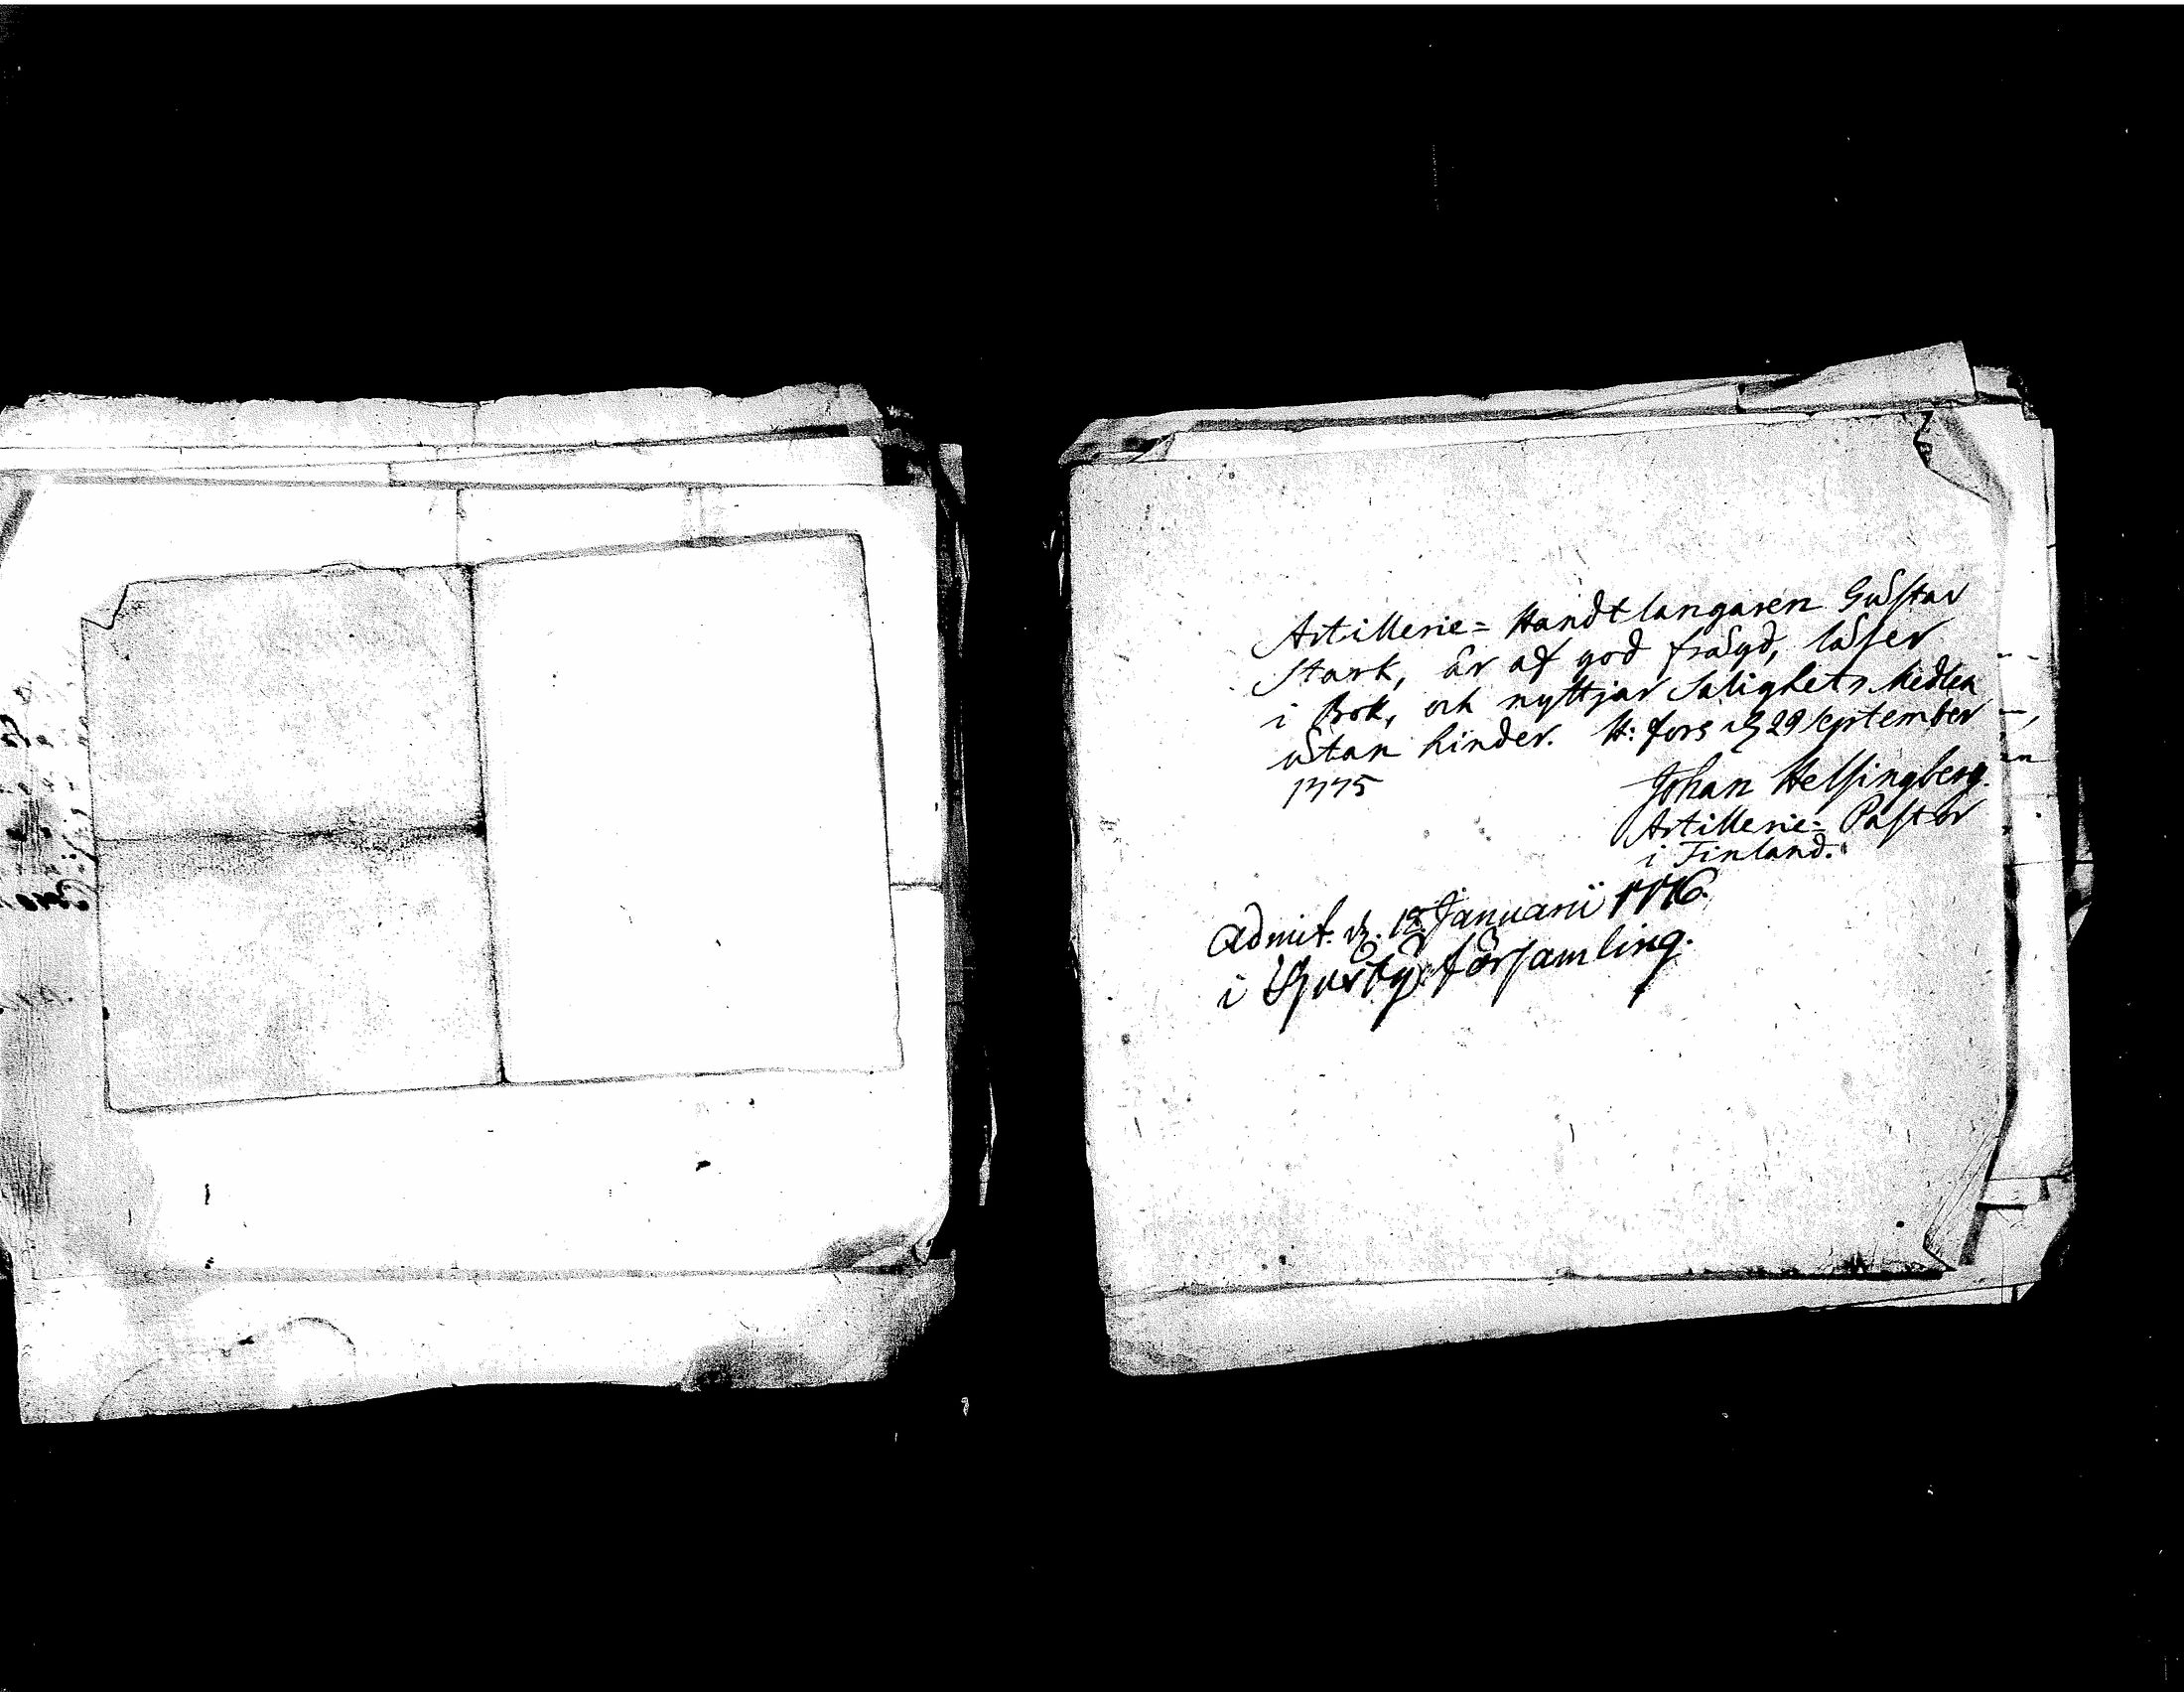 Artillerie= Handtlangaren Gustav
Stark, är af god frägd, läser
i Bok, och nyttjar Salighets Medlen
utan hinder. H:fors d 29 September
1775
Johan Helsingberg.
Artillerie= Pastor
i Finland.
Admit. d. 18 Januarii 1776.
i församling.